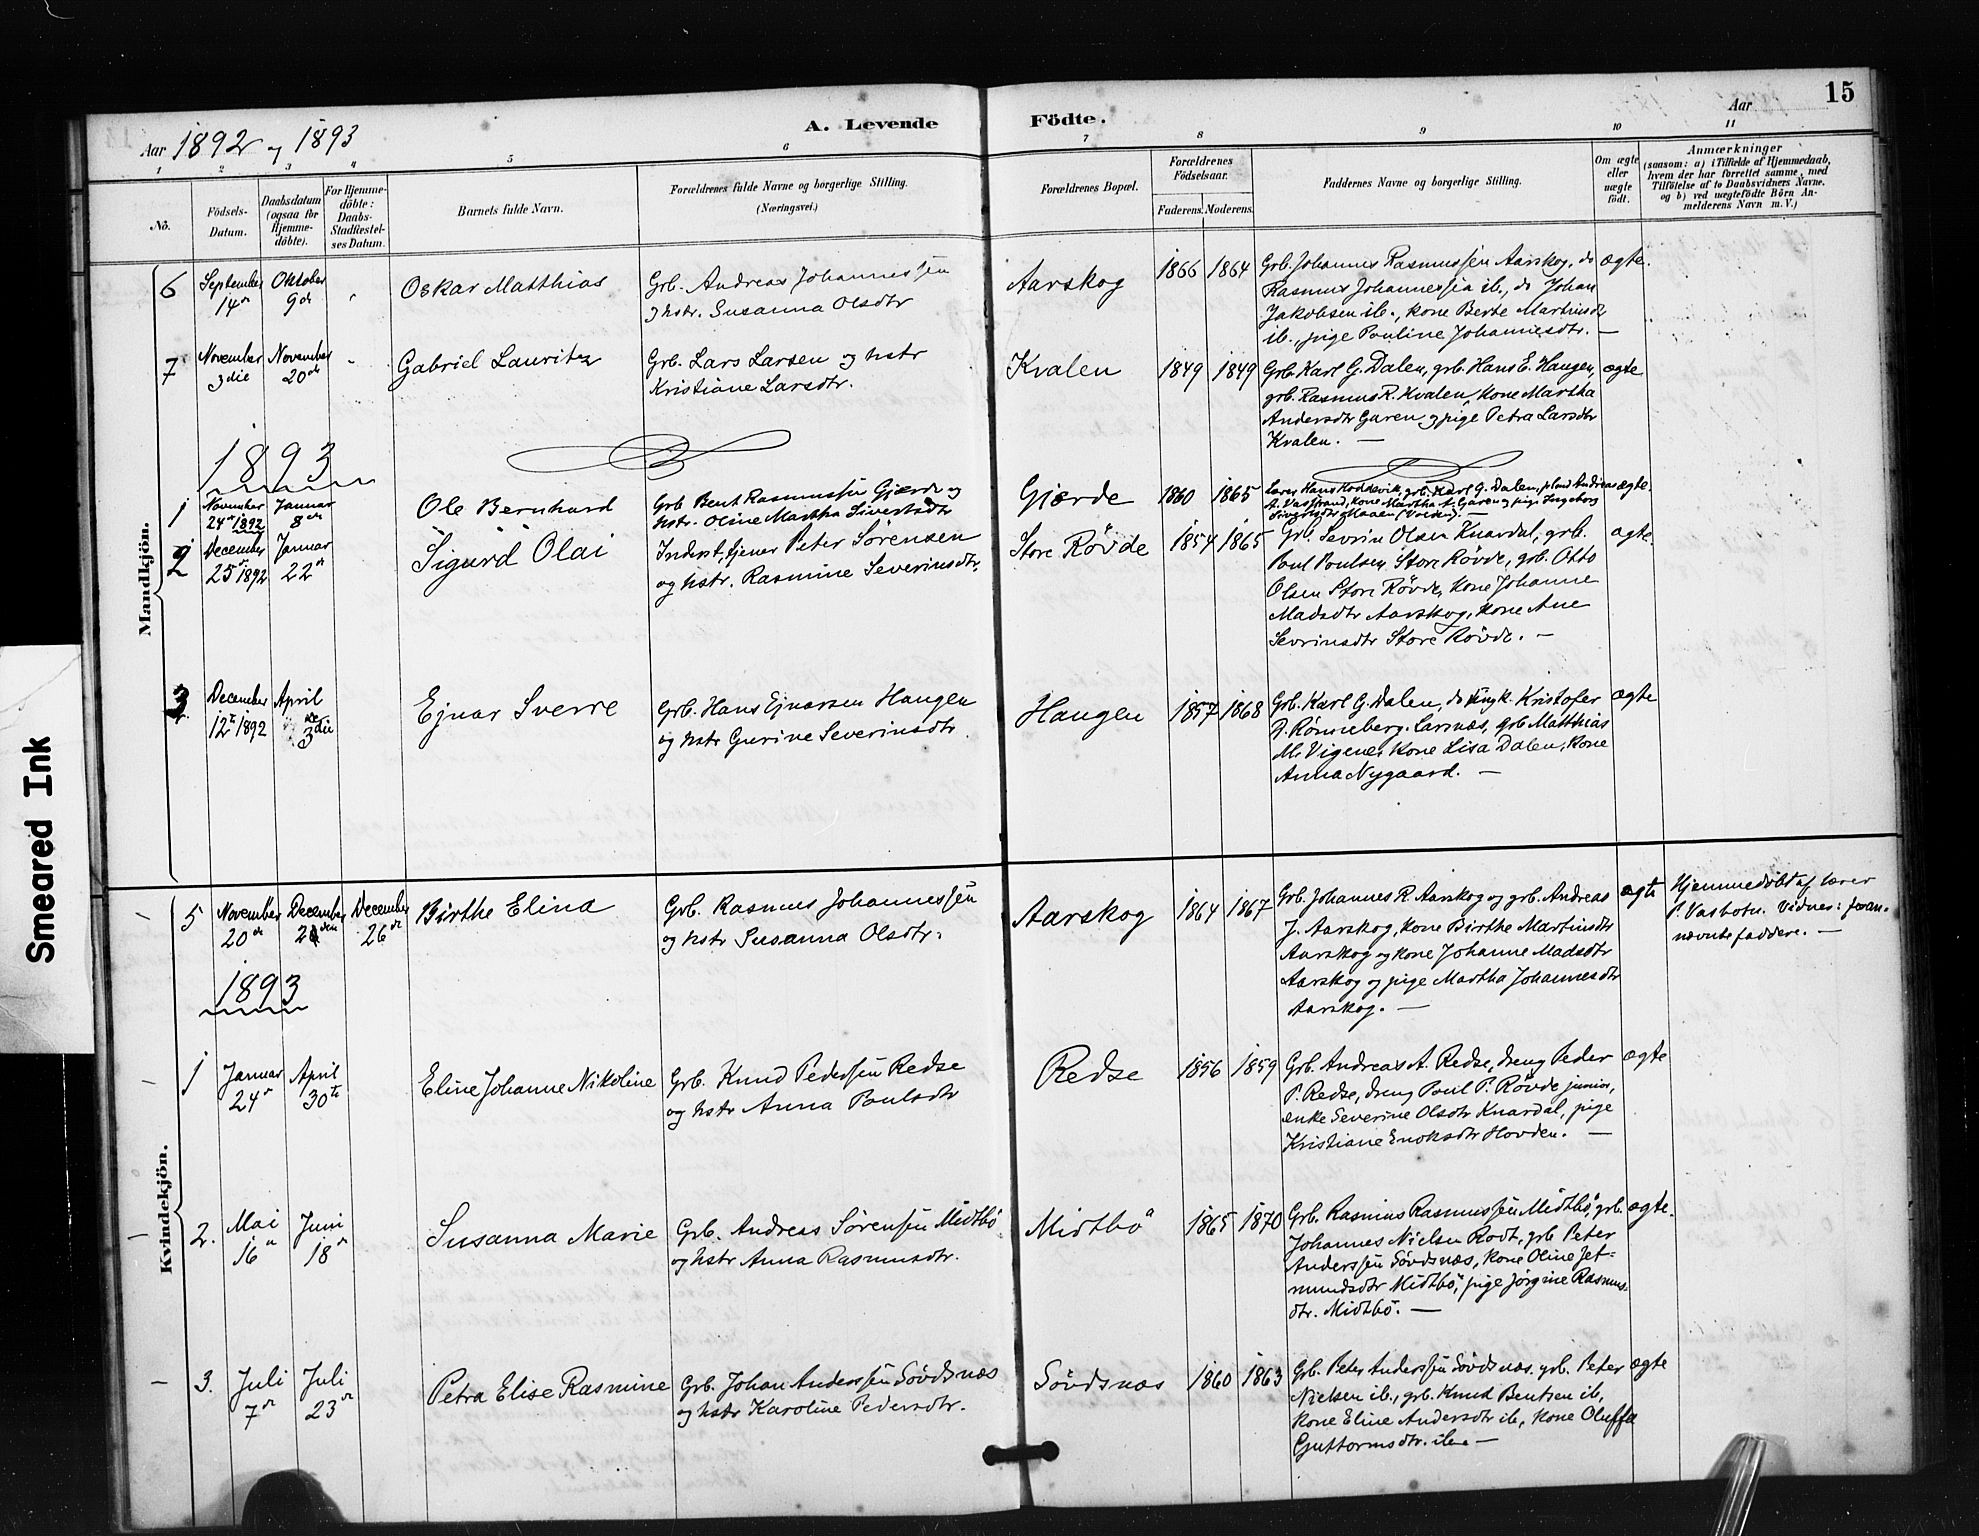 15
Aar 1892 og 1893
A. Levende Födte.
Aar
1 2 3 4 5 6 7 8 9 10 11
Nö.
Födsels-
Datum.
Daabsdatum
(ogsaa for
Hjemme-
döbte).
For Hjemme-
döbte:
Daabs-
Stadfæstel-
ses Datum.
Barnets fulde Navn.
Forældrenes fulde Navne og borgerlige Stilling.
(Næringsvei.)
Forældrenes Bopæl.
Forældrenes
Födselsaar.
Faderens. Moderens.
Faddernes Navne og borgerlige Stilling.
Om ægte
eller
uægte
födt.
Anmærkninger
(saasom: a) i Tilfælde af Hjemmedaab,
hvem der har forrettet samme, med
Tilföielse af to Daabsvidners Navne,
og b) ved uægtefödte Börn An-
melderens Navn m. V.)
Mandkjön.
6
September
14de
Oktober
9de
Oskar Matthias
Grb. Andreas Johannessen
og hstr. Susanna Olsdtr
Aarskog
1866 1864
Grb. Johannes Rasmussen Aarskog, do
Rasmus Johannessen ib., do Johan
Jakobsen ib., kone Berte Martinsdtr
ib., pige Pauline Johannesdtr. —
ægte.
7
November
3die
November
20de
Gabriel Lauritz
Grb. Lars Larsen og hstr
Kristiane Larsdtr.
Kvalen
1849 1849
Grb. Karl G. Dalen, grb. Hans E. Haugen,
grb. Rasmus R. Kvalen, kone Martha
Andersdtr Garen og pige Petra Larsdtr
Kvalen. —
ægte
1893
1
November
24de 1892
Januar
8de
Ole Bernhard
Grb Bent Rasmussen Gjærde og
hstr. Oline Martha Sivertsdtr
Gjærde
1860 1865
Lærer Hans Koddevik, grb. Karl G. Dalen, Andreas
A. Vasstrand, kone Martha A. Garen og pige Ingeborg
Sivertsdtr (Volden). —
ægte.
2
December
25de 1892
Januar
22de
Sigurd Olai
Inderst, tjener Peter Sörensen
og hstr. Rasmine Severinsdtr.
Store Rövde
1854 1865
Grb. Sevrin Olsen Knardal, grb.
Poul Poulsen Store Rövde, grb. Otto
Olsen Store Rövde, kone Johanne
Madsdtr Aarskog, kone Ane
Sevrinsdtr Store Rövde. —
ægte.
3
December
12te 1892
April
3die
Ejnar Sverre
Grb. Hans Ejnarsen Haugen
og hstr Gurine Severinsdtr.
Haugen
1857 1868
Grb. Karl G. Dalen, do Kristofer
P. Rönneberg. Larsnæs, grb Matthias
M. Vigene, kone Lisa Dalen, kone
Anna Nygaard. —
ægte
Kvindekjön.
5
November
20de
December
den
December
26de
Birthe Elina
Grb. Rasmus Johannessen
og hstr Susanna Olsdtr.
Aarskog
1864 1867
Grb. Johannes R. Aarskog og grb. Andreas
J. Aarskog, kone Birthe Martinsdtr
Aarskog og kone Johanne Madsdtr
Aarskog og pige Martha Johannesdtr
Aarskog. —
ægte
Hjemmedöbt af lærer
P. Vasbotn. Vidner: foran-
nævnte faddere. —
1893
1
Januar
24de
April
30te
Eline Johanne Nikoline
Grb. Knud Pedersen Redse
og hstr Anna Poulsdtr
Redse
1856 1859
Grb. Andreas A. Redse, dreng Peder
P. Redse, dreng Poul P. Rövde junior,
enke Severine Olsdtr Knardal, pige
Kristiane Enoksdtr Hovden. —
ægte
2.
Mai
16de
Juni
18de
Susanna Marie
Grb. Andreas Sörensen Midtbö
og hstr Anna Rasmusdtr.
Midtbö
1865 1870
Grb. Rasmus Rasmussen Midtbö, grb.
Johannes Nielsen Rodt, grb Peter
Anderssen Sövdsnæs, kone Oline Jet-
mundsdtr Midtbö, pige Jörgine Rasmus-
dtr. Midtbö. —
ægte.
3.
Juli
7de
Juli
23de
Petra Elise Rasmine
Grb. Johan Anderssen Sövdsnæs
og hstr Karoline Pedersdtr.
Sövdsnæs
1860 1863
Grb. Peter Anderssen Sövdsnæs, grb. Peter
Nielsen ib., grb. Knud Bentsen ib,
kone Eline Andersdtr ib, kone Oluffa
Guttormsdtr. ib. —
ægte
Smeared Ink